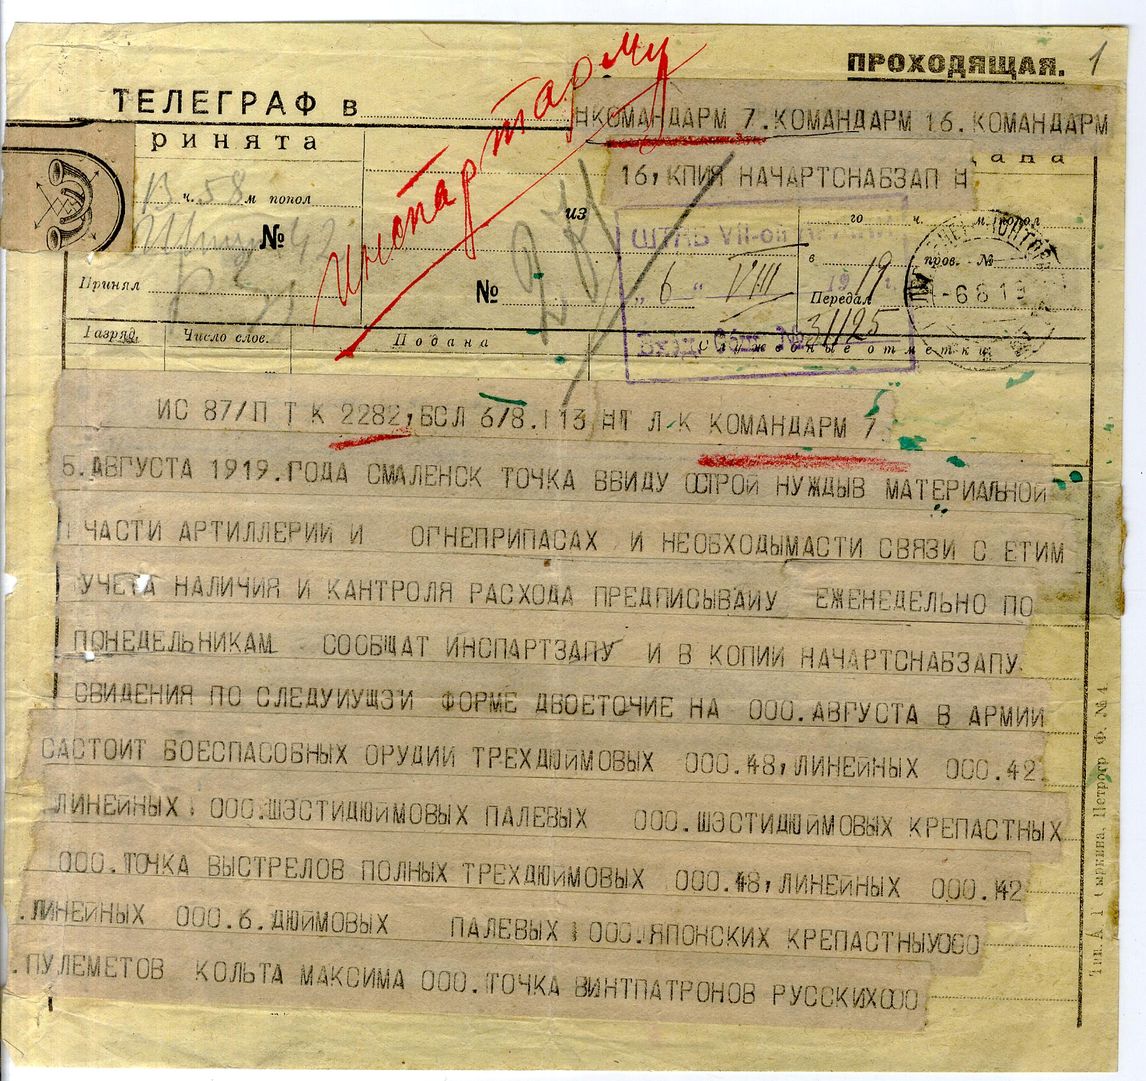 ПРОХОДЯЩАЯ. 1
ТЕЛЕГРАФ в
Инспартарму
НКОМАНДАРМ 7. КОМАНДАРМ 16. КОМАНДАРМ
ринята
дана
16, КПИЯ НАЧАРТСНАБЗАП Н
В ч. 58 м попол
из
го ч. м. попол
ШТАБ VII-ой
№
в
пров. №
"6" VIII 1919 г.
-6 8 19
Принял
№
Передал
31125
Вход. Общ. №
Разряд. Число слов. Подана Служебные отметки
ИС 87/П Т К 2282, БСЛ 6/8. 1 13 НТ Л-К КОМАНДАРМ 7
5. АВГУСТА 1919. ГОДА СМАЛЕНСК ТОЧКА ВВИДУ ОСТРОЙ НУЖДЫВ МАТЕРИАЛЬНОЙ
ЧАСТИ АРТИЛЛЕРИИ И ОГНЕПРИПАСАХ И НЕОБХОДЫМАСТИ СВЯЗИ С ЕТИМ
УЧЕТА НАЛИЧИЯ И КАНТРОЛЯ РАСХОДА ПРЕДПИСЫВАИУ ЕЖЕНЕДЕЛЬНО ПО
ПОНЕДЕЛЬНИКАМ СООБЩАТ ИНСПАРТЗАПУ И В КОПИИ НАЧАРТСНАБЗАПУ
СВИДЕНИЯ ПО СЛЕДУИУЩЭИ ФОРМЕ ДВОЕТОЧИЕ НА ООО. АВГУСТА В АРМИИ
САСТОИТ БОЕСПАСОБНЫХ ОРУДИЙ ТРЕХДЮЙМОВЫХ ООО. 48, ЛИНЕЙНЫХ ООО. 42
ЛИНЕЙНЫХ ООО. ШЭСТИДЮЙМОВЫХ ПАЛЕВЫХ ООО. ШЭСТИДЮЙМОВЫХ КРЕПАСТНЫХ
ООО. ТОЧКА ВЫСТРЕЛОВ ПОЛНЫХ ТРЕХДЮЙМОВЫХ ООО. 48, ЛИНЕЙНЫХ ООО. 42
. ЛИНЕЙНЫХ ООО. 6. ДЮЙМОВЫХ ПАЛЕВЫХ ООО. ЯПОНСКИХ КРЕПАСТНЫХООО
. ПУЛЕМЕТОВ КОЛЬТА МАКСИМА ООО. ТОЧКА ВИНТПАТРОНОВ РУССКИХООО
Петроср Ф. № 4